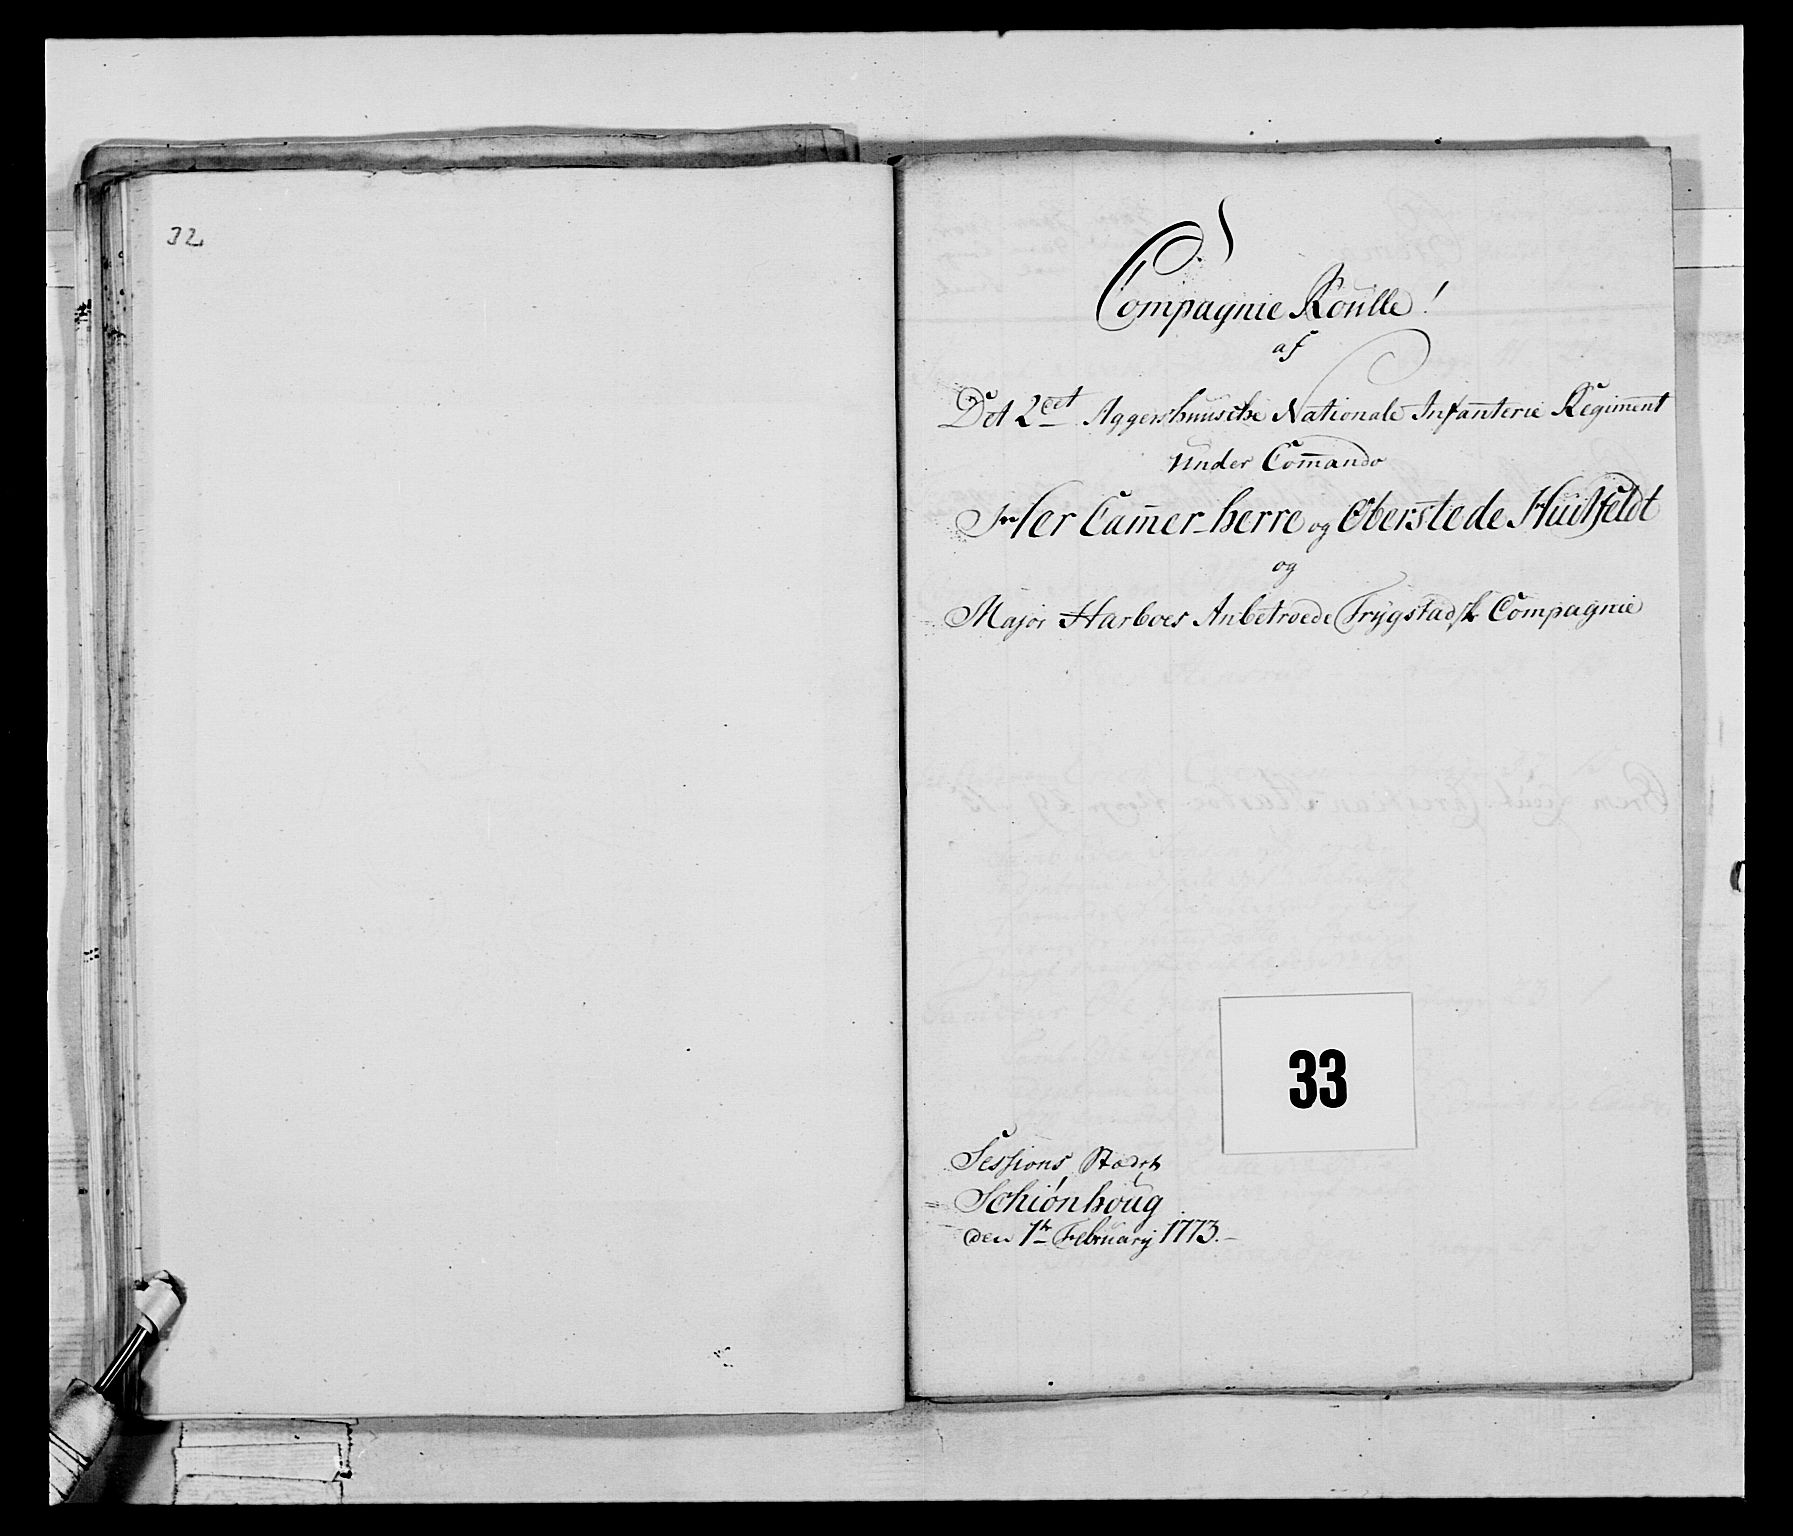 32
Compagnie Roulle!
af
Det 2det Aggershuusche Nationale Infanterie Regiment
Under Com̄ando
Her Cam̄er-herre og Oberste de Huitfeldt
og
Major Harboes Anbetroede Trygstadsk Compagnie
33
Sessions Stædet
Schiönhoug
den 1te February 1773.